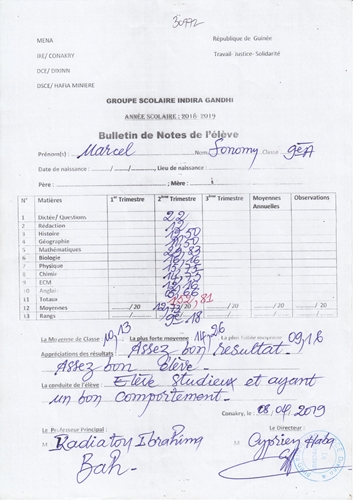 30772
MENA
République de Guinée
IRE/ CONAKRY
Travail- Justice- Solidarité
DCE/ DIXINN
DSCE/ HAFIA MINIERE
GROUPE SCOLAIRE INDIRA GANDHI
ANNÉE SCOLAIRE : 2018- 2019
Bulletin de Notes de l'élève
Prénom(s) : Marcel Nom : Sonomy Classe : 9e A
Date de naissance : Lieu de naissance :
Père : ; Mère :
N° Matières 1er Trimestre 2ème Trimestre 3ème Trimestre Moyennes Annuelles Observations
1 Dictée/ Questions 22
2 Rédaction
3 Histoire 12,50
4 Géographie 11,50
5 Mathématiques
6 Biologie
7 Physique 13,75
8 Chimie 14,75
9 ECM
10 Anglais
11 Totaux 152,81
12 Moyennes /20 12,73 /20 /20 /20
13 Rangs 9e 18
La Moyenne de Classe 10,13 La plus forte moyenne 14,26 La plus faible moyenne 09,16
Appréciations des résultats Assez bon résultat.
Assez bon élève.
La conduite de l'élève : Elève studieux et ayant
un bon comportement.
Conakry, le 08.04.2019
Le Professeur Principal : Le Directeur :
Kadiatou Ibrahima Cyprien Haba
Bah.